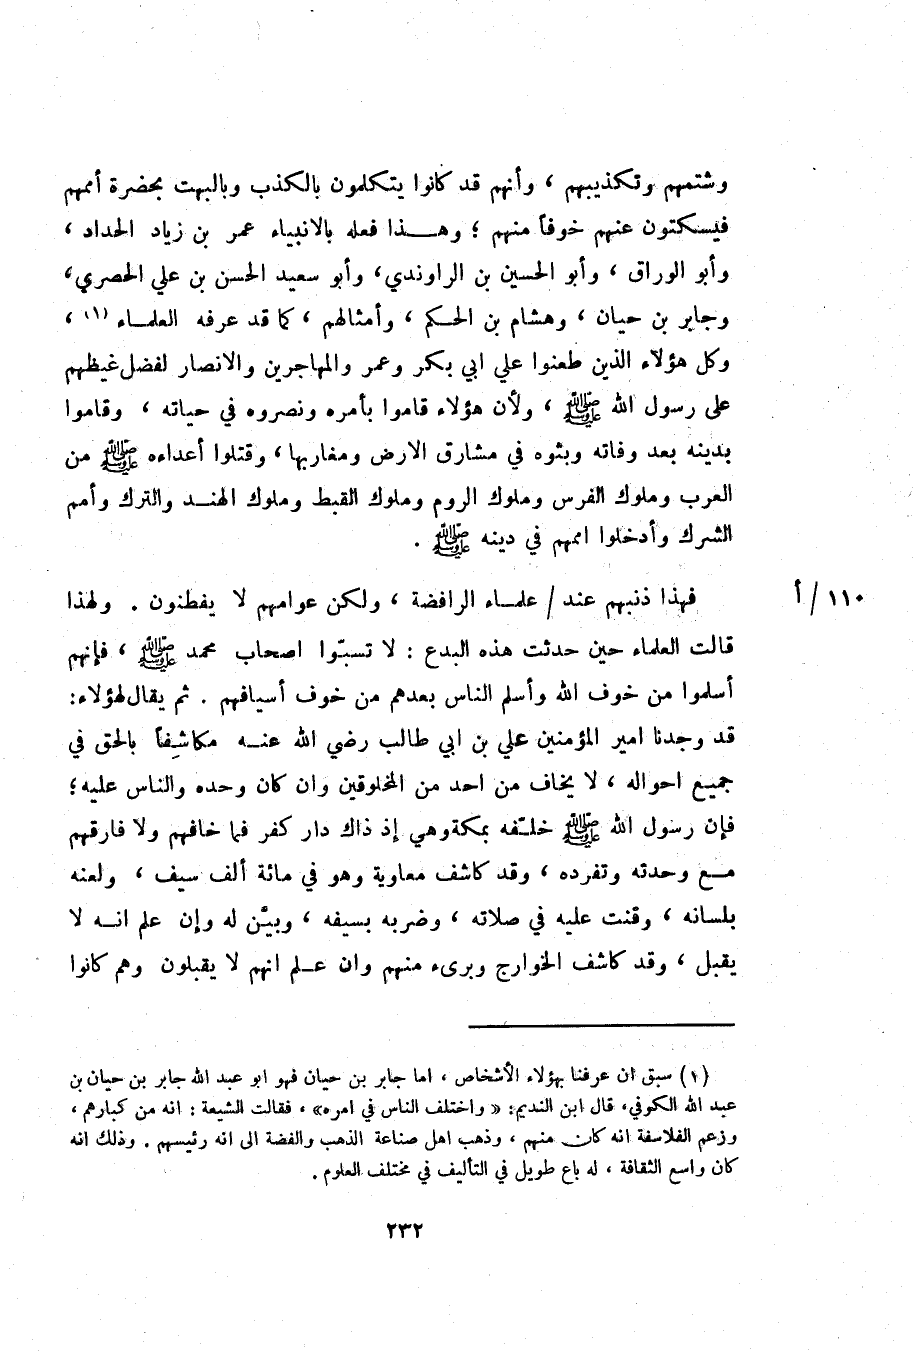 وشتمهم وتكذيبهم ، وأنهم قد كانوا يتكلمون بالكذب وبالبهت بحضرة أممهم
فيسكتون عنهم خوفاً منهم ؛ وهذا فعله بالانبياء عمر بن زياد الحداد ،
وأبو الوراق ، وأبو الحسين بن الراوندي، وأبو سعيد الحسن بن علي الحصري،
وجابر بن حيان ، وهشام بن الحكم ، وأمثالهم ، كما قد عرفه العلماء (١) ،
وكل هؤلاء الذين طعنوا علي ابي بكر وعمر والمهاجرين والانصار لفضل غيظهم
على رسول الله ﷺ ، ولأن هؤلاء قاموا بأمره ونصروه في حياته ، وقاموا
بدينه بعد وفاته وبثوه في مشارق الارض ومغاربها، وقتلوا أعداءه ﷺ من
العرب وملوك الفرس وملوك الروم وملوك القبط وملوك الهند والترك وأمم
الشرك وأدخلوا اممهم في دينه ﷺ .
فهذا ذنبهم عند / علماء الرافضة ، ولكن عوامهم لا يفطنون . ولهذا
١١٠ / أ
قالت العلماء حين حدثت هذه البدع : لا تسبّوا اصحاب محمد ﷺ ، فإنهم
أسلموا من خوف الله وأسلم الناس بعدهم من خوف أسيافهم . ثم يقال لهؤلاء:
قد وجدنا امير المؤمنين علي بن ابي طالب رضي الله عنه مكاشِفاً بالحق في
جميع احواله ، لا يخاف من احد من المخلوقين وان كان وحده والناس عليه؛
فإن رسول الله ﷺ خلّفه بمكة وهي إذ ذاك دار كفر فما خافهم ولا فارقهم
مع وحدته وتفرده ، وقد كاشف معاوية وهو في مائة ألف سيف ، ولعنه
بلسانه ، وقنت عليه في صلاته ، وضربه بسيفه ، وبيَّن له وإن علم انه لا
يقبل ، وقد كاشف الخوارج وبرىء منهم وان علم انهم لا يقبلون وهم كانوا
(١) سبق ان عرفنا بهؤلاء الأشخاص ، اما جابر بن حيان فهو ابو عبد الله جابر بن حيان بن
عبد الله الكوفي، قال ابن النديم: « واختلف الناس في امره» ، فقالت الشيعة : انه من كبارهم ،
وزعم الفلاسفة انه كان منهم ، وذهب اهل صناعة الذهب والفضة الى انه رئيسهم . وذلك انه
كان واسع الثقافة ، له باع طويل في التأليف في مختلف العلوم .
٢٣٢